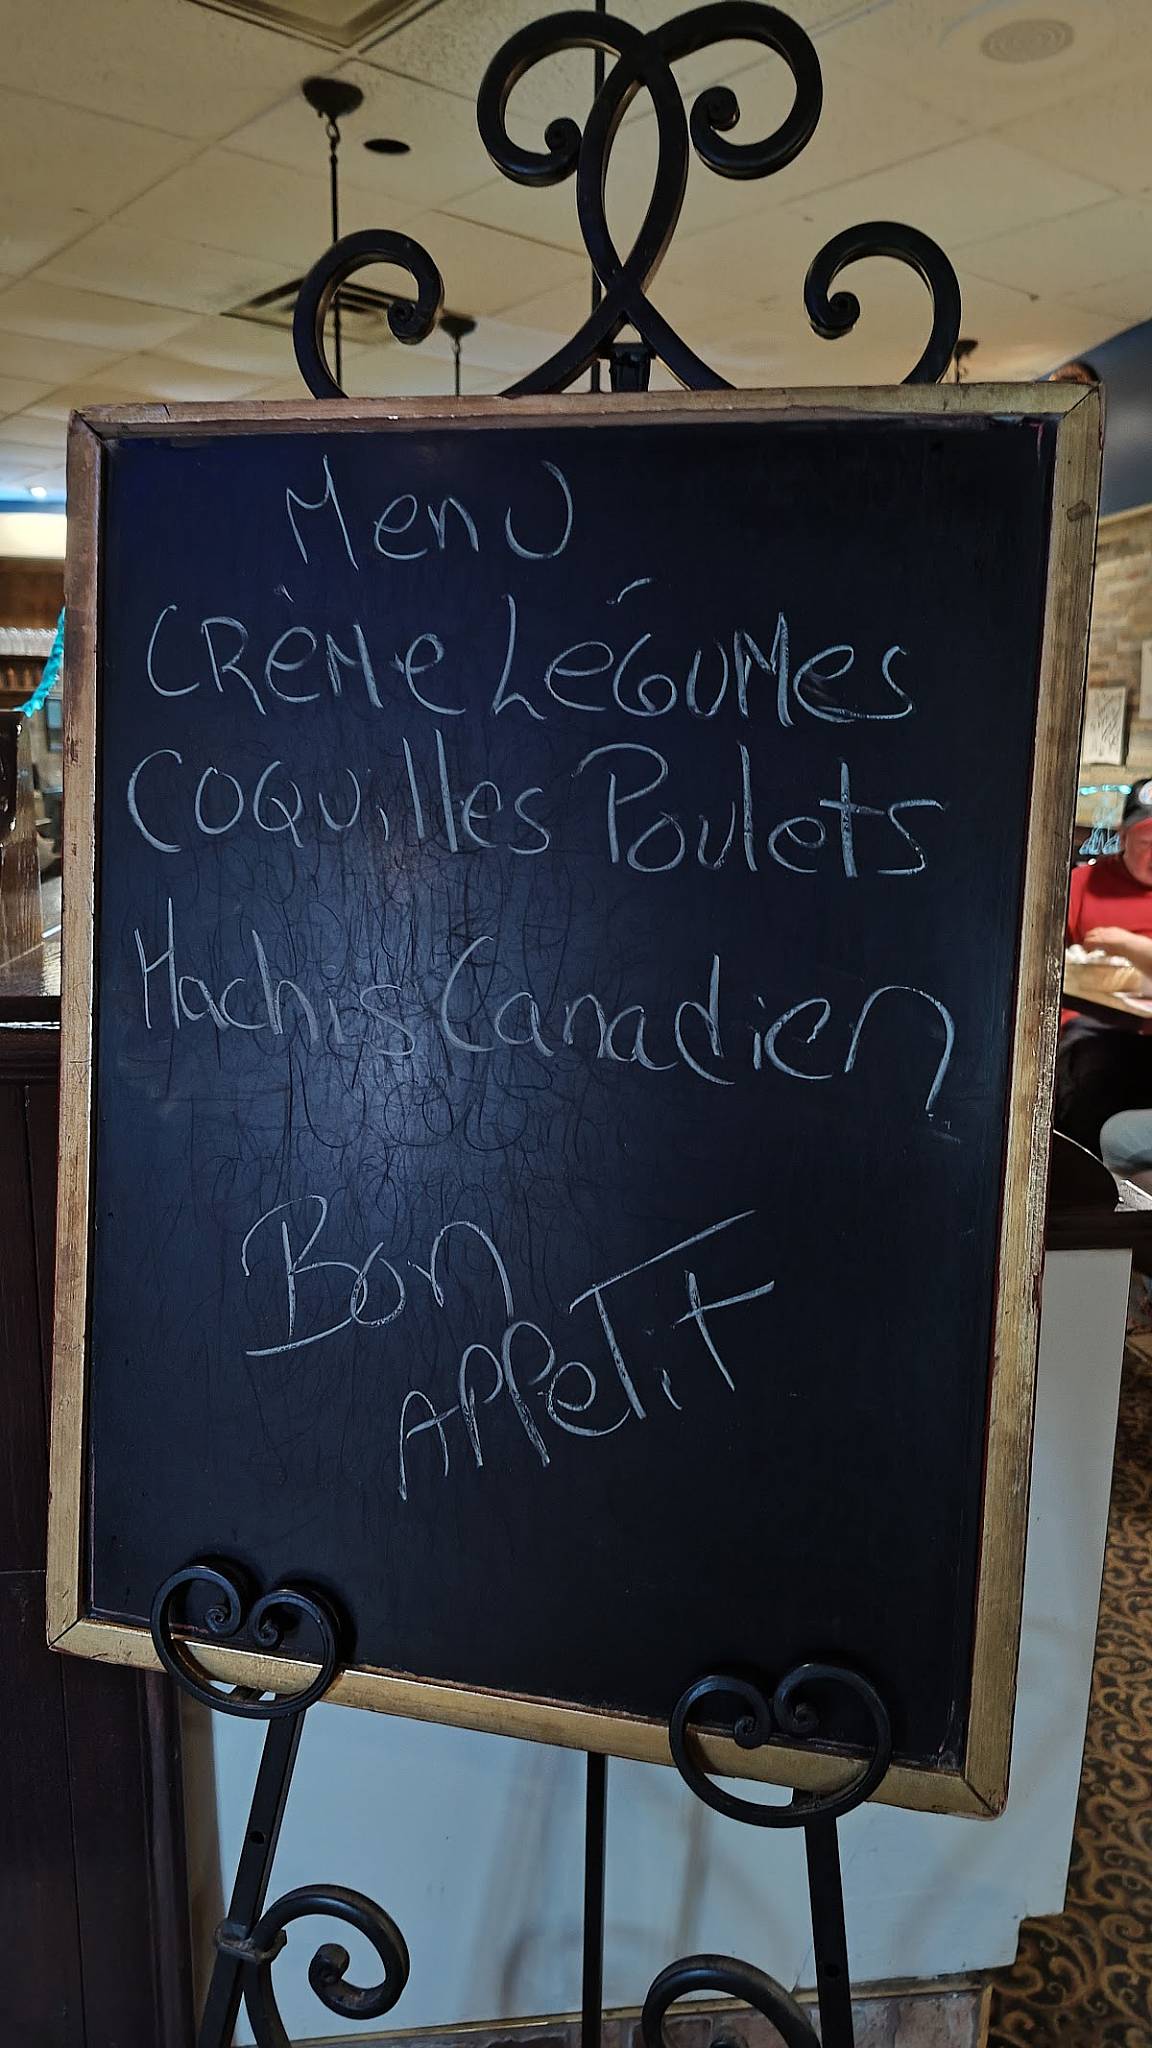 Menu
CRÈMe LéGUMes
COQUilles Poulets
Hachis Canadien
Bon
APPeTit